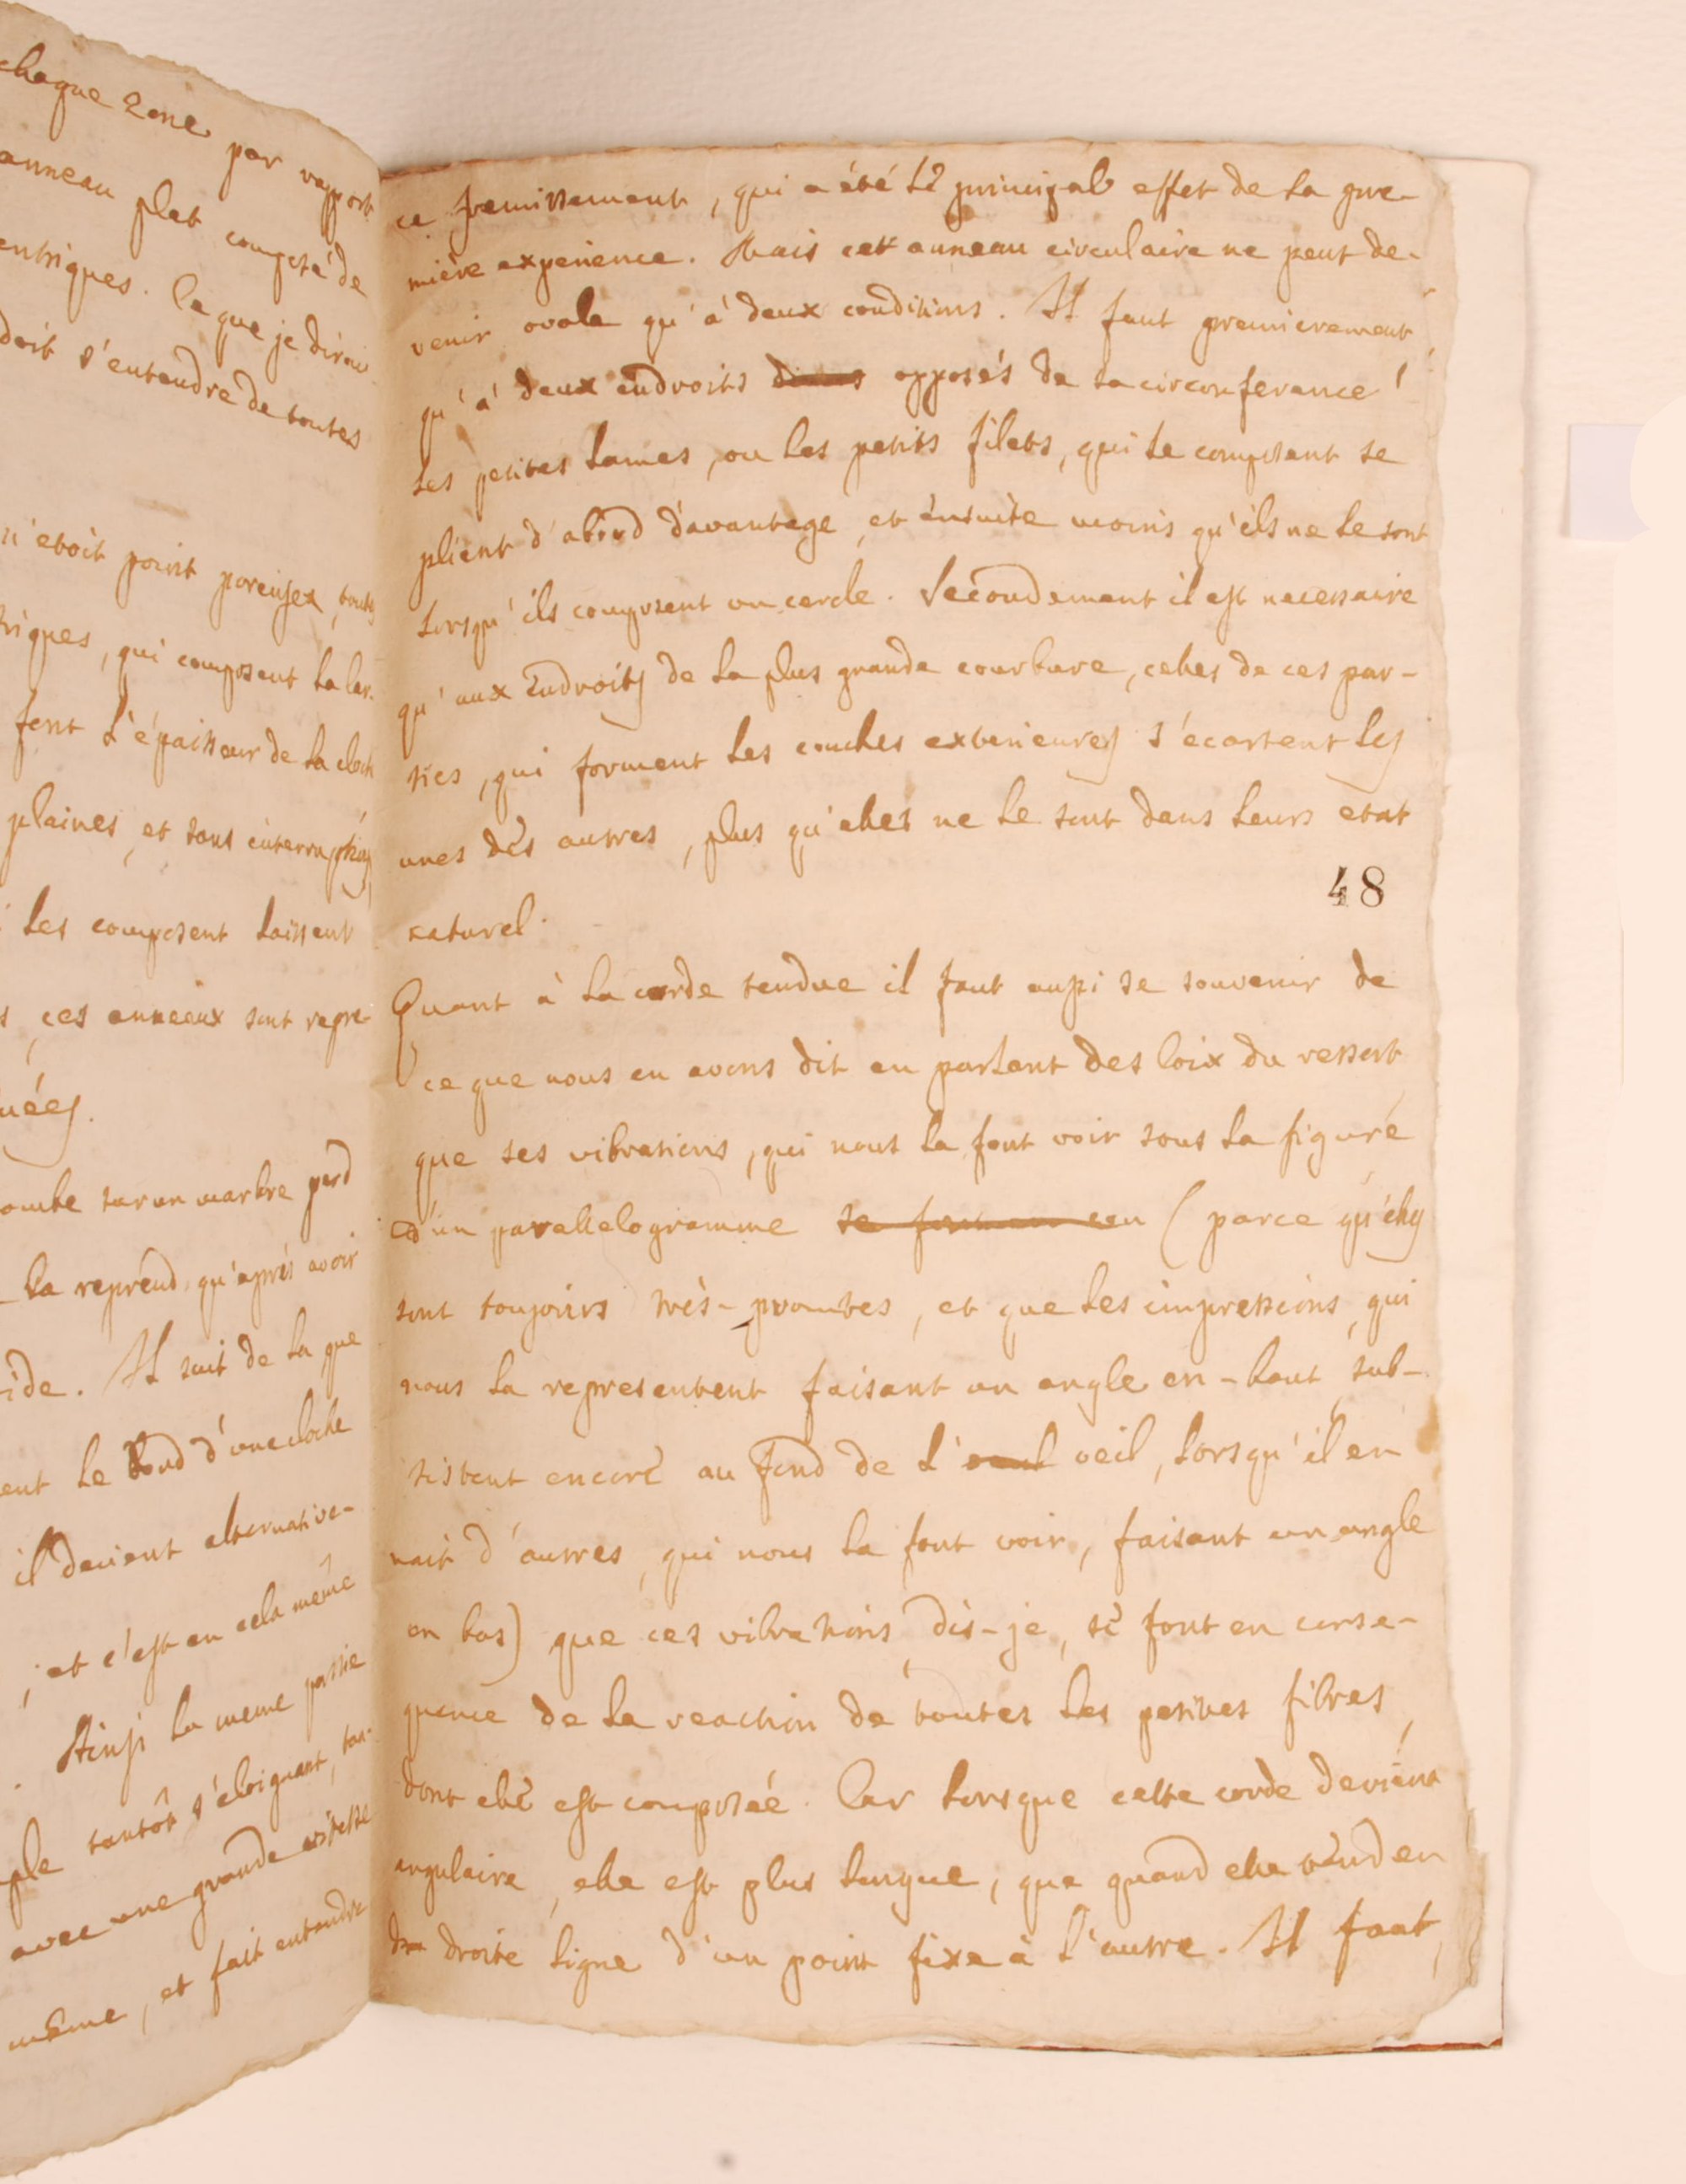 chaque zone par rapport
anneau plat composé de
entriques. Ce que je dirai
doit s'entendre de toutes
n'etoit point poreuse, tous
triques, qui composent la lar-
font l'épaisseur de la cloch
plaines, et sans interruption
les composent laissent
s, ces anneaux sont repre-
uées.
ombe sur un marbre perd
la reprend, qu'après avoir
ide. Il suit de la que
ent le bord d'une cloche
il devient alternative-
; et c'est en cela même
. Ainsi la meme partie
ple tantôt s'éloignant, tan-
avec une grande vitesse
même, et fait entendre
ce fremissement, qui a été le principal effet de la pre-
mière experience. Mais cet anneau circulaire ne peut de-
venir ovale qu'à deux conditions. Il faut premierement
qu'à deux endroits opposés de sa circonferance
les petites lames, ou les petits filets, qui le composent se
plient d'abord d'avantage, et ensuite moins qu'ils ne le sont
lorsqu'ils composent un cercle. Secondement il est necessaire
qu'aux endroits de la plus grande courbure, celles de ces par-
ties, qui forment les couches exterieures s'ecartent les
unes des autres, plus qu'elles ne le sont dans leurs etat
48
naturel.
Quant à la corde tendue il faut aussi se souvenir de
ce que nous en avons dit en parlant des loix du ressort
que ses vibrations, qui nous la font voir sous la figure
d'un parallelogramme (parce qu'elles
sont toujours très-promtes, et que les impressions, qui
nous la representent faisant un angle en-haut, sub-
sistent encore au fond de l'oeil, lorsqu'il en
nait d'autres, qui nous la font voir, faisant un angle
en bas) que ces vibrations, dis-je, se font en conse-
quence de la reaction de toutes les petites fibres,
dont elle est composée. Car lorsque cette corde devient
angulaire, elle est plus longue, que quand elle tend en
droite ligne d'un point fixe à l'autre. Il faut,